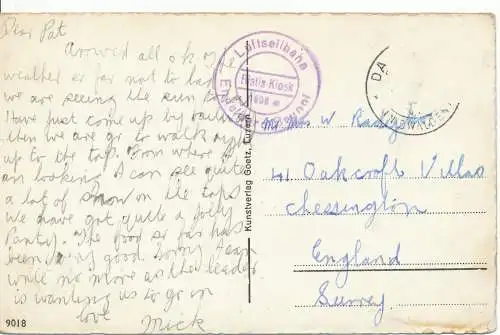 Dear Pat
Arrived all ok of the
weather so far not to bad
we are seeing the sun
Have just come up by
then we are go to walk
up to the top. From where I
am looking I can see quite
a lot of snow on the tops
We have got quite a jolly
Party. The food so far has
been very good. Sorry I can
write no more as the leader
is wanting us to go in
love Mick
9018
Luftseilbahn
Gratis-Kiosk
Kunstverlag Goetz, Luzern
Mr Mrs W
41 Oakcroft Villas
Chessington
England
Surrey